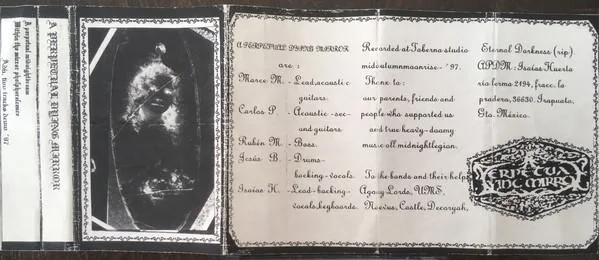 A perpetual midnights sun
Within the mirror phosphorescence
Adv. two tracks demo '97
A PERPETUAL DYING MIRROR
A PERPETUAL DYING MIRROR
are :
Marco M. - Lead, acoustic
guitars.
Carlos P. - Acoustic - sec-
ond guitars
Rubén M. - Bass.
Jesús B. - Drums-
backing - vocals.
Isaías H. - Lead - backing -
vocals, keyboards.
Recorded at Taberna studio
midwautumnmoonrise - '97.
Thanx to :
our parents, friends and
people who supported us
and true heavy-doomy
music all midnightlegion.
To the bands and their help:
Agony Lords, UMS,
Noevus, Castle, Decoryah,
Eternal Darkness (rip).
APDM: Isaías Huerta
río lerma 2194, fracc. la
pradera, 36630. Irapuato,
Gto. México.
A PERPETUAL
DYING MIRROR